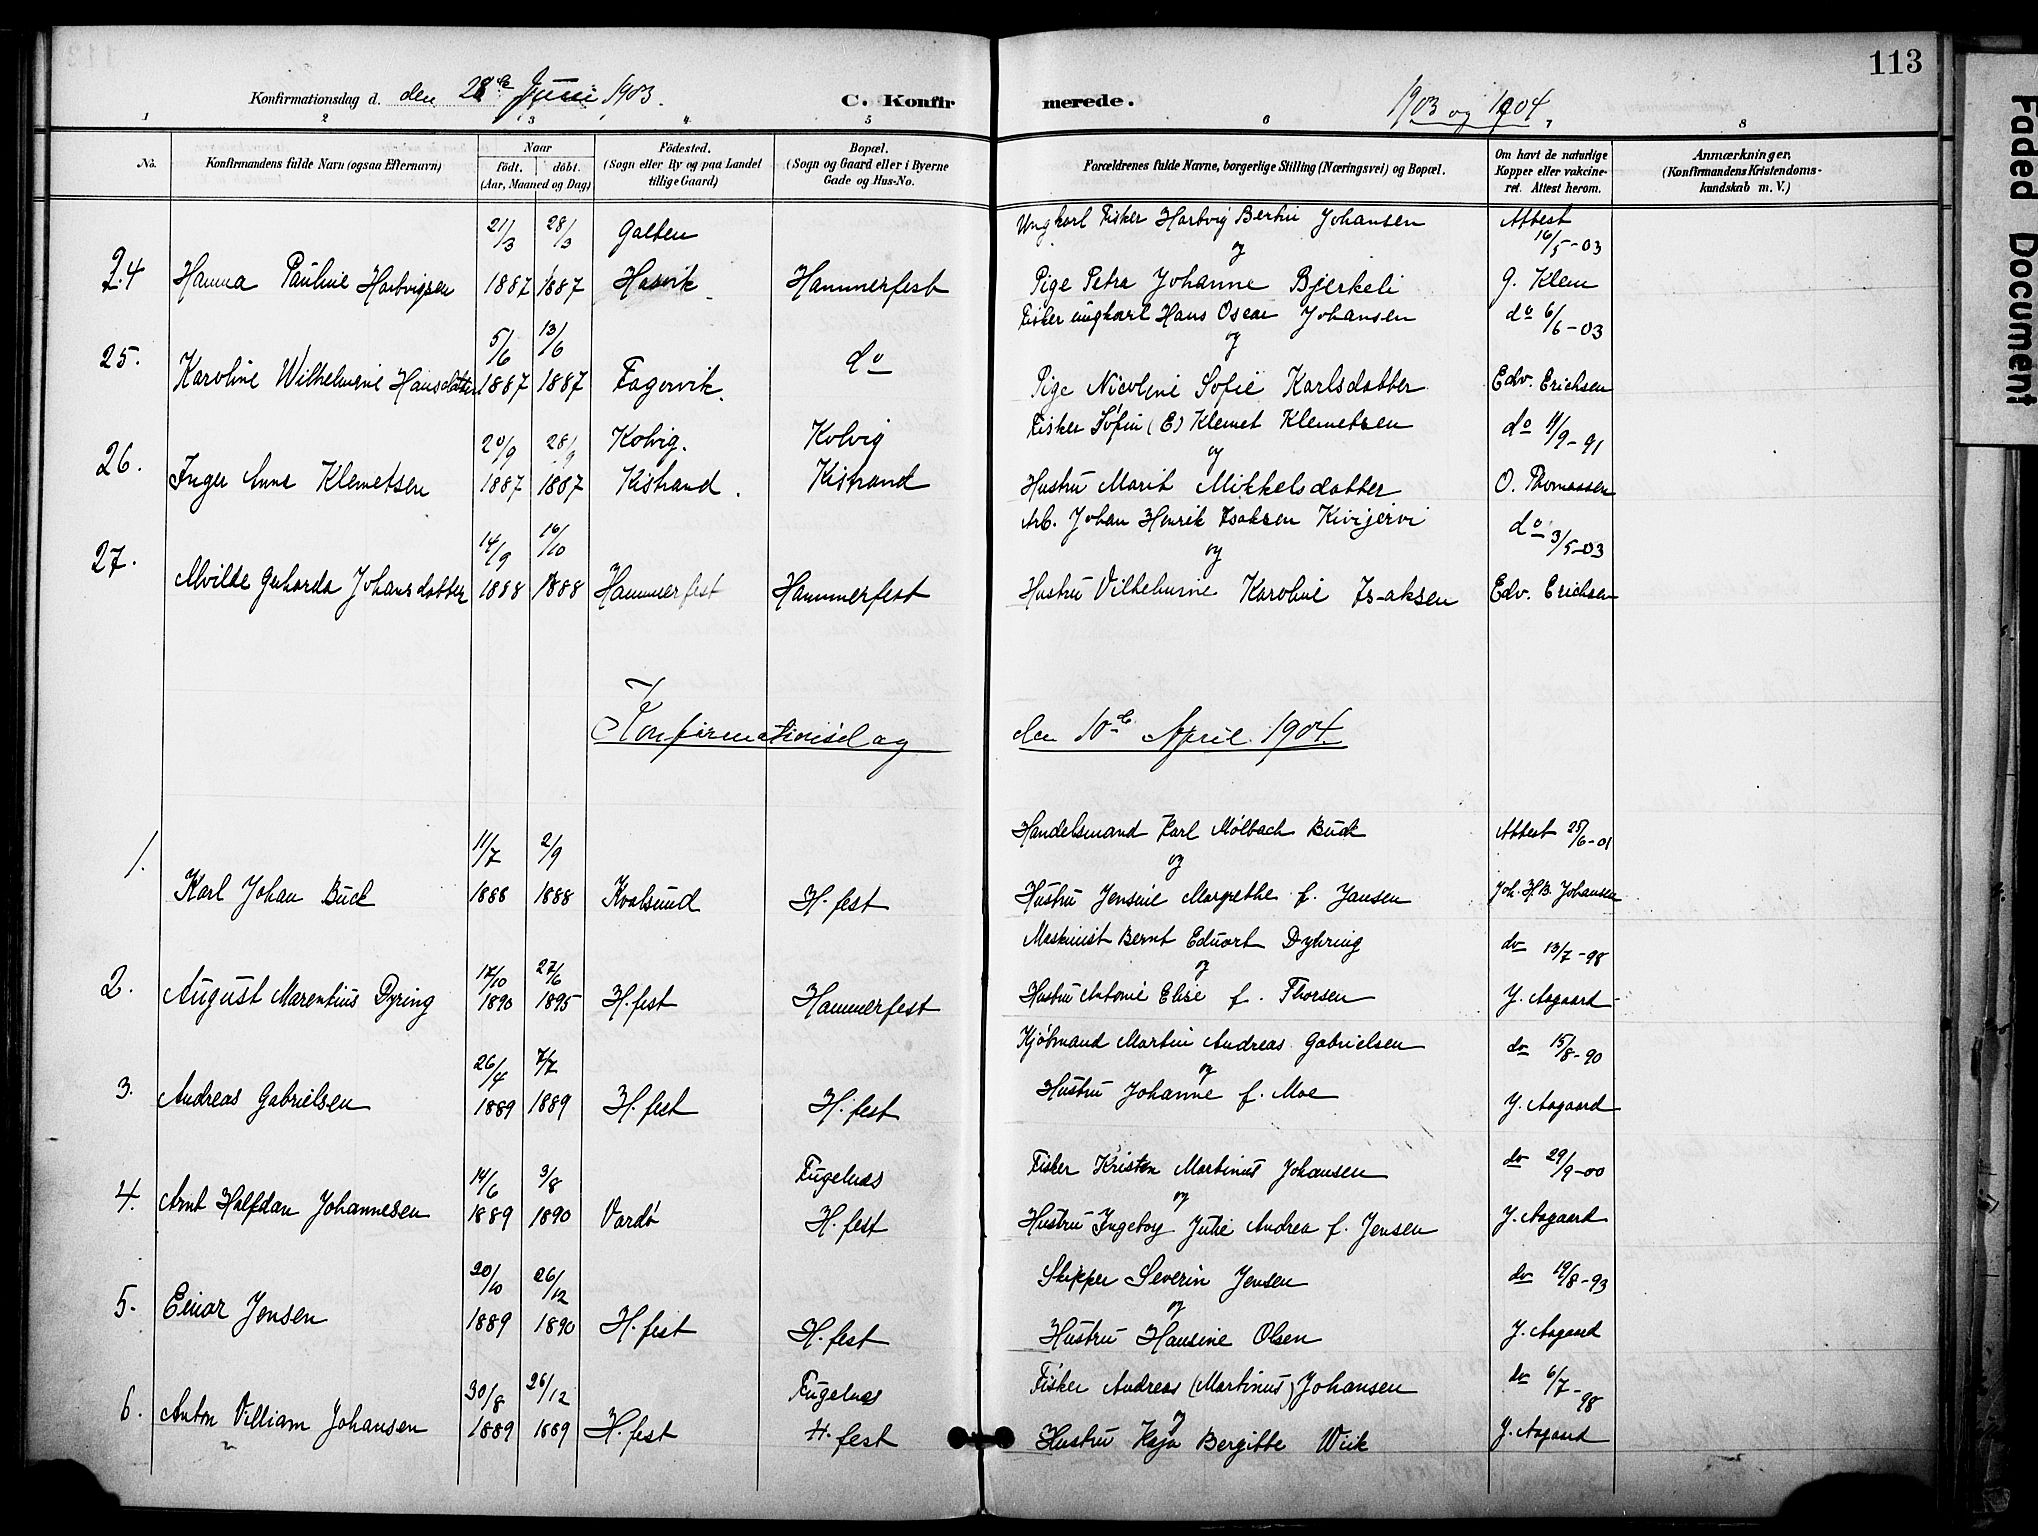 113
Konfirmationsdag d. den 28de Juni 1903. C. Konfirmerede. 1903 og 1904
1 2 3 4 5 6 7 8
No. Konfirmandens fulde Navn (ogsaa Efternavn) Naar født. døbt. (Aar, Maaned og Dag) Fødested. (Sogn eller By og paa Landet tillige Gaard) Bopæl. (Sogn og Gaard eller i Byerne Gade og Hus-No. Forældrenes fulde Navne, borgerlige Stilling (Næringsvei) og Bopæl. Om havt de naturlige Kopper eller vakcineret. Attest herom. Anmærkninger. (Konfirmandens Kristendomskundskab m. V.)
21/3 28/3 Galten Ungkarl Fisker Hartvig Bertin Johansen Attest 16/5-03
og
24 Hanna Pauline Hartvigsen 1887 1887 Hasvik Hammerfest Pige Petra Johanne Bjerkeli G. Klem
5/6 13/6 Fisker ungkarl Hans Oscar Johansen do 6/6-03
og
25. Karoline Wilhelmine Hansdatter 1887 1887 Fagervik. do Pige Nicoline Sofie Karlsdatter Edv. Erichsen
20/9 28/9 Kolvig. Kolvig Fisker Søfin (E) Klemet Klemetsen do 11/9-91
og
26. Inger Anna Klemetsen 1887 1887 Kistrand. Kistrand Hustru Marit Mikkelsdatter O. Thomassen
14/9 16/10 Arb. Johan Henrik Isaksen Kivijervi do 3/5-03
og
27. Alvilde Gerharda Johansdatter 1888 1888 Hammerfest Hammerfest Hustru Vilhelmine Karoline Isaksen Edv. Erichsen
Konfirmationsdag den 10de April 1904.
11/7 2/9 Handelsmand Karl Mølbach Buck Attest 25/6-01
og
1. Karl Johan Buck 1888 1888 Kvalsund H. fest Hustru Jensine Margrethe f. Jansen Joh. H.B. Johansen
17/10 27/6 Maskinist Bernt Eduart Dyhring do 13/7-98
og
2. August Marentius Dyring 1890 1895 H. fest Hammerfest Hustru Antonie Elise f. Thorsen J. Aagaard
26/4 7/7 Kjøbmand Martin Andreas Gabrielsen do 15/8-90
og
3. Andreas Gabrielsen 1889 1889 H. fest H. fest Hustru Johanne f. Moe J. Aagaard
14/6 3/8 Fugelnæs Fisker Kristen Martinus Johansen do 29/9-00
og
4. Arnt Halfdan Johannesen 1889 1890 Vardø H. fest Hustru Ingeborg Julie Andrea f. Jensen J. Aagaard
20/10 26/12 Skipper Severin Jensen do 19/8-93
og
5. Einar Jensen 1889 1890 H. fest H. fest Hustru Hansine Olsen J. Aagaard
30/8 26/12 Fugelnæs Fisker Andreas (Martinus) Johansen do 6/7-98
og
6. Anton Villiam Johansen 1889 1889 H. fest H. fest Hustru Kaja Bergitte Wiik J. Aagaard
Faded Document